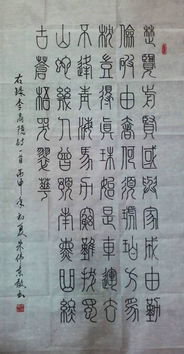 歷覽前賢國與家成由勤
儉破由奢何須琥珀方為
枕豈得真珠始是車運去
不逢青海馬力窮難拔蜀
山蛇幾人曾預南薰曲終
古蒼梧哭翠華
右録李商隱詩一首丙申年初夏